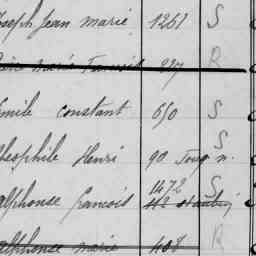 Joseph Jean marie 1261 S
marie 227 R
Emile constant 650 S
Theophile Henri 90 S
1472 S
alphonse francois
alphonse marie 408 R